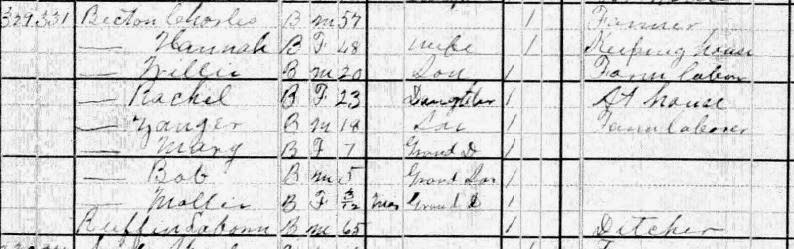 329 331 Becton Charles B M 57 1 Farmer
— Hannah B F 48 Wife 1 Keeping house
— Willie B M 20 Son 1 Farm labor
— Rachel B F 23 Daughter 1 At house
— B M 18 Son 1 Farm laborer
— Mary B F 7 Grand D 1
— Bob B M 5 Grand Son 1
— Mollie B F 3/12 Grand D 1
Ruffin B M 65 1 Ditcher